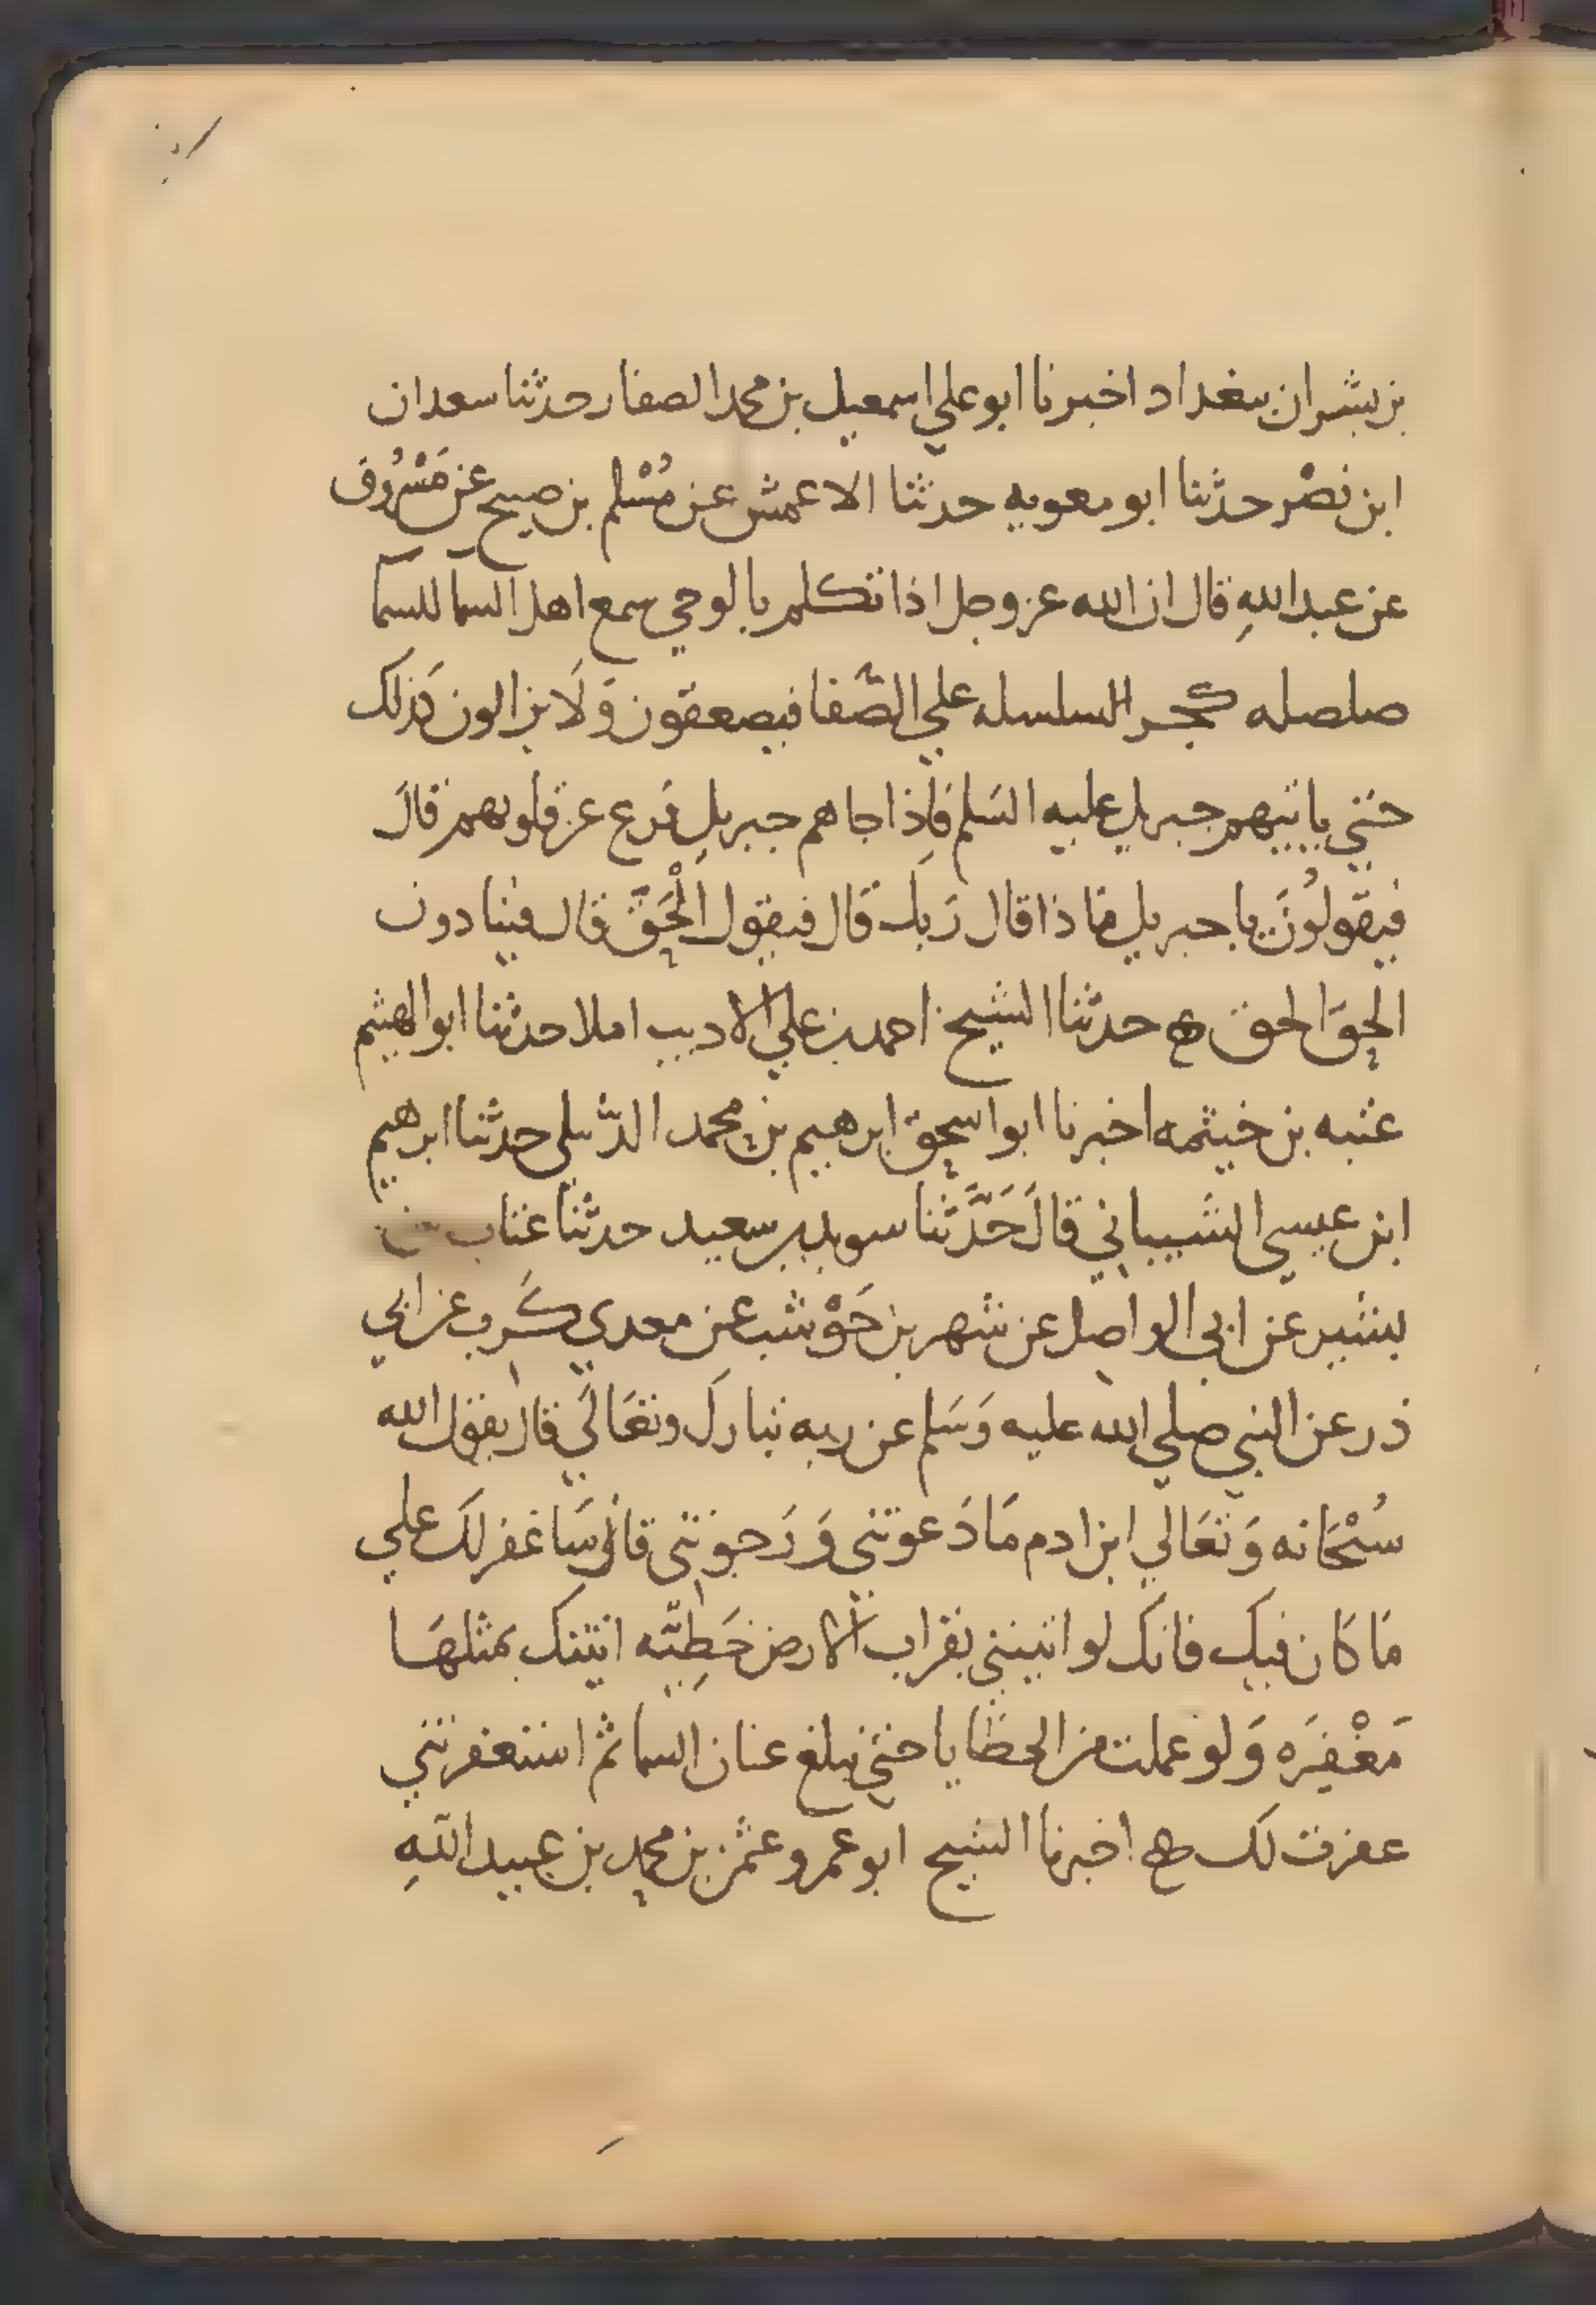 بن بشران ببغداد اخبرنا ابو علي اسمعيل بن محمد الصفار حدثنا سعدان
ابن نصْر حدثنا ابو معويه حدثنا الاعمش عن مُسْلم بن صبيح عن مَسْرُوق
عن عبد اللهِ قال ان الله عز وجل اذا تكلم بالوحي سمع اهل السما للسما
صلصله كجر السلسله علي الصَّفا فيصعقون وَلَا يزالون كَذلك
حتي ياتيهم جبريل عليه السَلم فَاِذا جاهم جبريل فزع عن قلوبهم قالَ
فيقولُونَ يا جبريل ماذا قال رَبك قَال فيقول الْحَقَّ قال فينادون
الحقَ الحق ه حدثنا الشيخ احمد بن علي الاديب املا حدثنا ابو الهيثم
عتبه بن خيثمه اخبرنا ابو اسحق ابرهيم بن محمد حدثنا ابرهيم
ابن عيسي الشيباني قالَ حَدَّثنا سويد بن سعيد حدثنا عتاب بن
بشير عن ابي الواصل عن شهر بن حَوْشب عن معدي كَرب عن ابي
ذر عن النبي صلي الله عليه وَسَلم عن ربه تبارك وتعَالَي قال يقول الله
سُبْحَانه وَتعَالي ابن ادم مَا دَعوتني وَرَجوتني فاني سَاغفر لكَ علي
مَا كَان فيك فانك لو اتيتني بقراب الارض خَطِيَّه اتيتك بمثلهَا
مَغْفِرَه وَلو عملت من الخطايا حتي تبلغ عنان السما ثم استغفرتني
غفرت لك ه اخبرنا الشيخ ابو عمرو عثمن بن محمد بن عبيد اللهِ